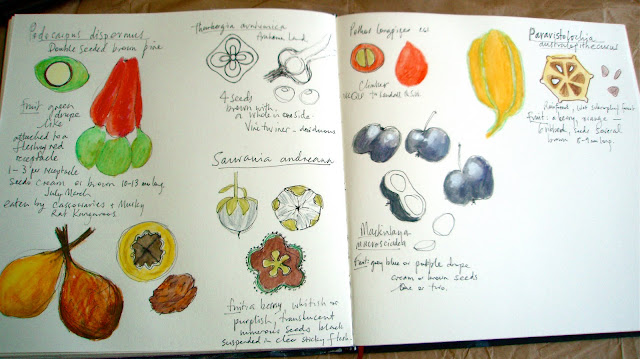 Podocarpus dispermus
Double seeded brown pine
fruit green
drupe
like
attached to a
fleshy red
receptacle
1-3 per receptacle
Seeds cream or brown 10-13 mm long
July March
eaten by Cassowaries + Musky
Rat Kangaroos
Thunbergia arnhemica
Arnhem Land
4 seeds
brown with
a whole in one side.
Vine twiner - deciduous
Saurauia andreana
fruit: a berry whitish or
purplish, translucent
numerous seeds black
suspended in clear sticky flesh
Pothos longipes
Climber
to
Mackinlaya
macrosciadea
Fruit: grey blue or purple drupe
cream or brown seeds
One or two.
Pararistolochia
australopithecurus
fruit: a berry, orange -
brown seeds